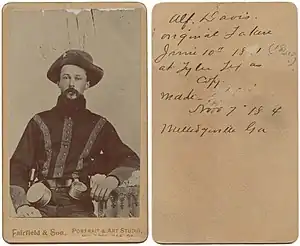 Fairfield & Son,
PORTRAIT & ART STUDIO,
Alf. Davis.
original Taken
June 10th
at Tyler Tex as
copy
made
Nov 7" 18
Milledgeville Ga